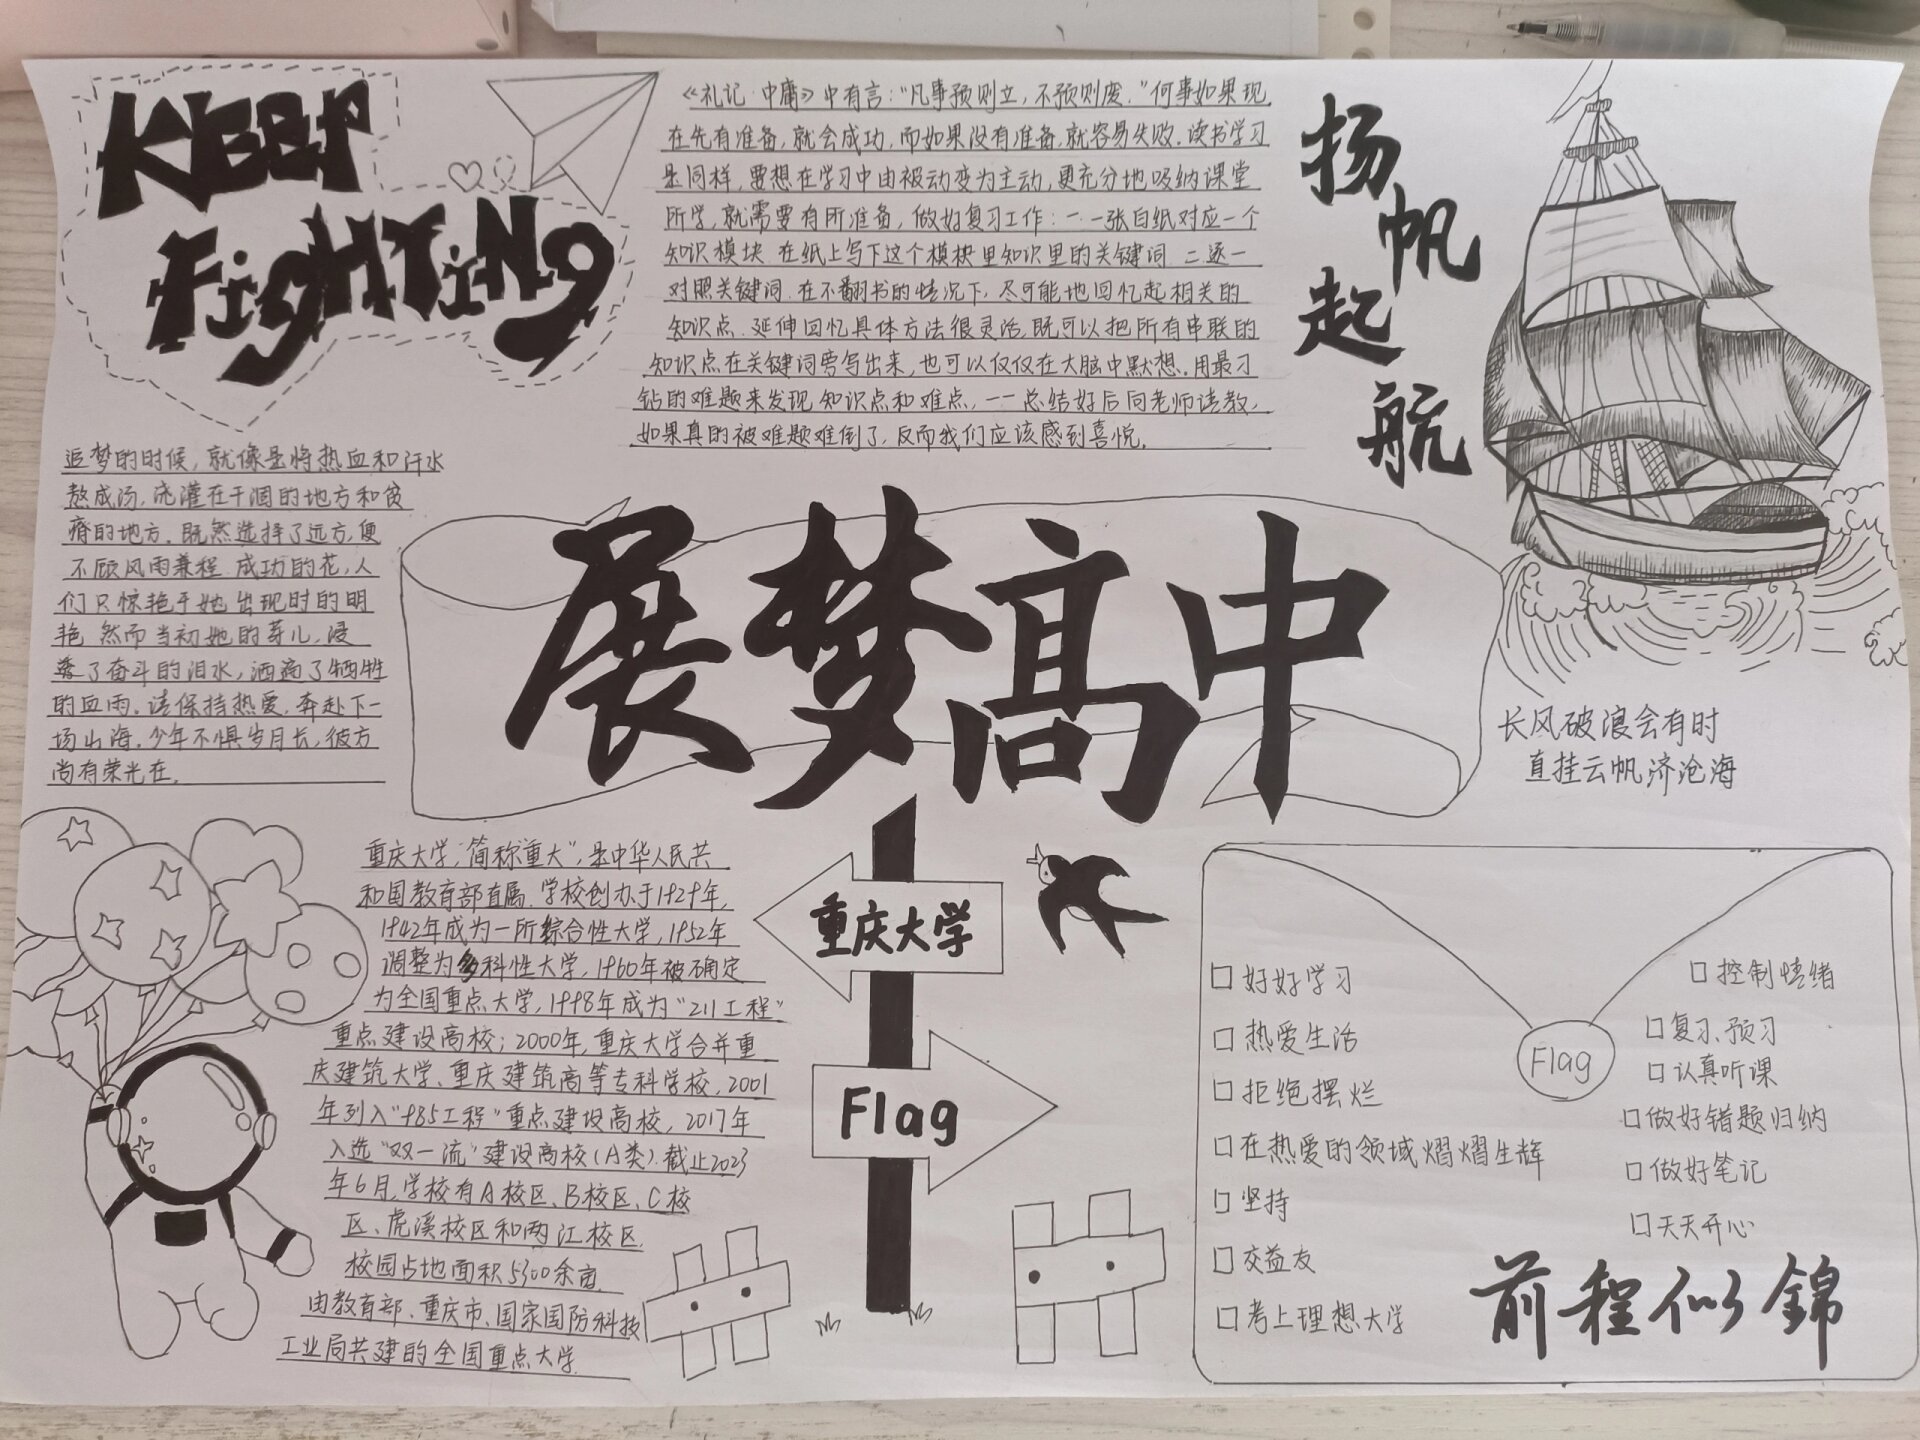 KEEP
FIGHTING
《礼记·中庸》中有言：“凡事预则立，不预则废.”何事如果现
在先有准备，就会成功，而如果没有准备，就容易失败.读书学习
是同样，要想在学习中由被动变为主动，更充分地吸纳课堂
所学，就需要有所准备，做好复习工作：一.一张白纸对应一个
知识模块 在纸上写下这个模块里知识里的关键词 二.逐一
对照关键词.在不翻书的情况下，尽可能地回忆起相关的
知识点.延伸回忆具体方法很灵活，既可以把所有串联的
知识点在关键词旁写出来，也可以仅仅在大脑中默想.用最刁
钻的难题来发现知识点和难点，一一总结好后向老师请教，
如果真的被难题难倒了，反而我们应该感到喜悦.
扬帆起航
追梦的时候，就像是将热血和汗水
熬成汤，浇灌在干涸的地方和贫
瘠的地方.既然选择了远方，便
不顾风雨兼程 成功的花，人
们只惊艳于她出现时的明
艳 然而当初她的芽儿，浸
透了奋斗的泪水，洒遍了牺牲
的血雨。请保持热爱，奔赴下一
场山海.少年不惧岁月长，彼方
尚有荣光在.
展梦高中
长风破浪会有时
直挂云帆济沧海
重庆大学，“简称重大”，是中华人民共
和国教育部直属.学校创办于1929年，
1942年成为一所综合性大学，1952年
调整为多科性大学，1960年被确定
为全国重点大学，1998年成为“211工程”
重点建设高校；2000年，重庆大学合并重
庆建筑大学、重庆建筑高等专科学校，2001
年列入“985工程”重点建设高校，2017年
入选“双一流”建设高校（A类）.截止2023
年6月，学校有A校区、B校区、C校
区、虎溪校区和两江校区.
校园占地面积5300余亩.
由教育部、重庆市、国家国防科技
工业局共建的全国重点大学.
重庆大学
Flag
Flag
□好好学习
□热爱生活
□拒绝摆烂
□在热爱的领域熠熠生辉
□坚持
□交益友
□考上理想大学
□控制情绪
□复习、预习
□认真听课
□做好错题归纳
□做好笔记
□天天开心
前程似錦